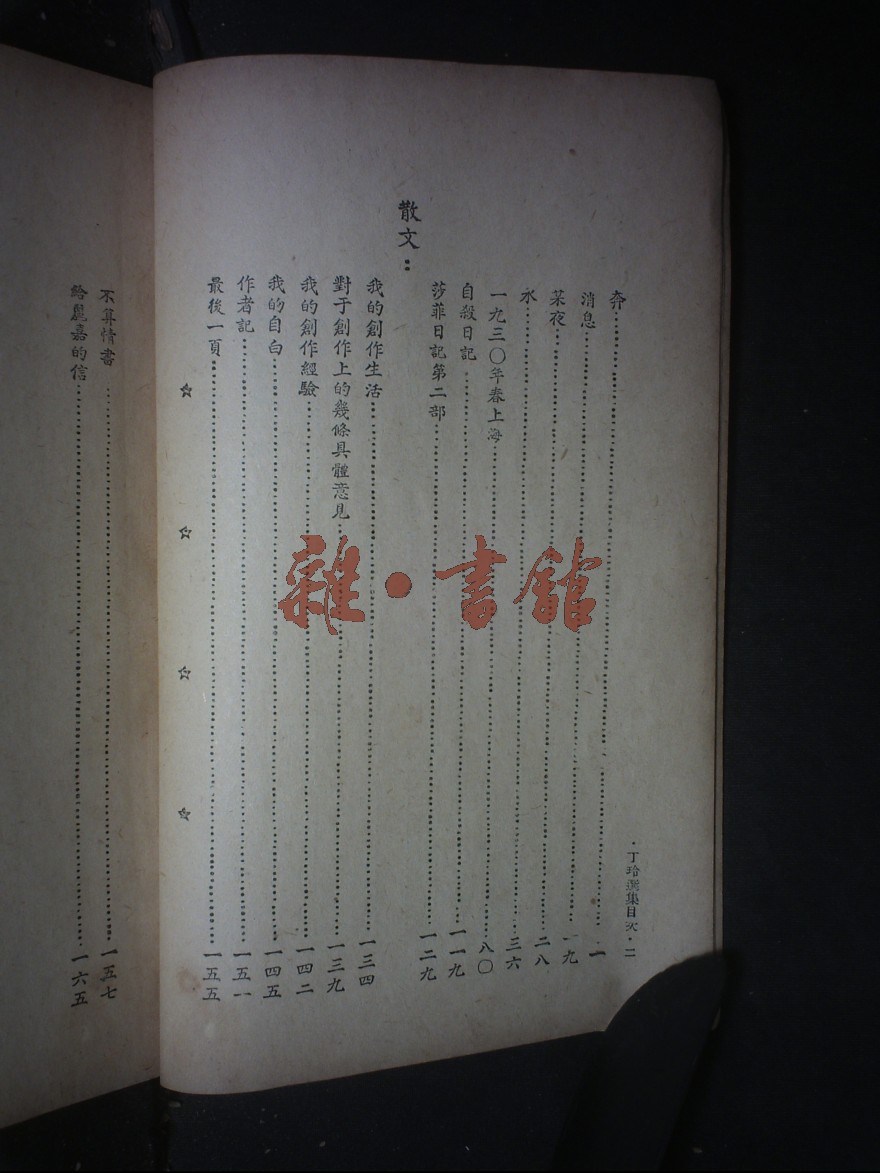 ·丁玲選集目次·二
奔……一
消息……一九
某夜……二八
水……三六
一九三〇年春上海……八〇
自殺日記……一一九
莎菲日記第二部……一二九
散文：
我的創作生活……一三四
對于創作上的幾條具體意見……一三九
我的創作經驗……一四二
我的自白……一四五
作者記……一五一
最後一頁……一五五
☆ ☆ ☆ ☆
不算情書……一五七
給麗嘉的信……一六五
雜·書館